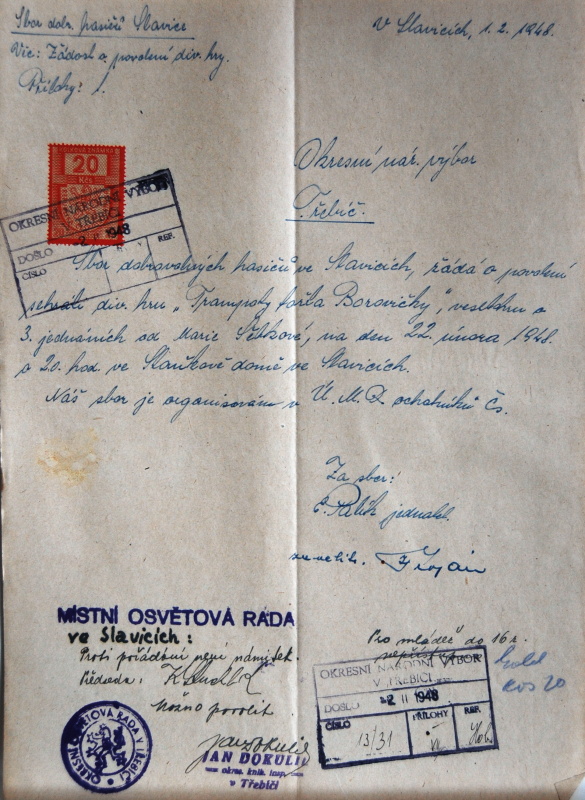 Sbor dobr. hasičů Slavice
V Slavicích, 1.2.1948.
Věc: Žádost o povolení div. hry.
Přílohy: 1.
Okresní nár. výbor
Třebíč.
20
Kčs
OKRESNÍ NÁRODNÍ VÝBOR
V TŘEBÍČI
DOŠLO 2 1948
ČÍSLO
REF.
Sbor dobrovolných hasičů ve Slavicích, žádá o povolení
sehráti div. hru „Trampoty Borovičky", veselohru o
3. jednáních od Marie, na den 22 února 1948.
o 20. hod. ve domě ve Slavicích.
Náš sbor je organisován v Ú. M. D. ochotníků čs.
Za sbor:
jednatel.
velit.
MÍSTNÍ OSVĚTOVÁ RADA
ve Slavicích:
Proti pořádání není námitek.
Předseda:
Možno povolit
Pro mládež do 16 r.
nepřístup
OKRESNÍ NÁRODNÍ VÝBOR
V TŘEBÍČI
DOŠLO 2 II 1948
ČÍSLO PŘÍLOHY REF.
13/31
20
OKRESNÍ OSVĚTOVÁ RADA V TŘEBÍČI
JAN DOKULIL
okres. knih. insp.
v Třebíči